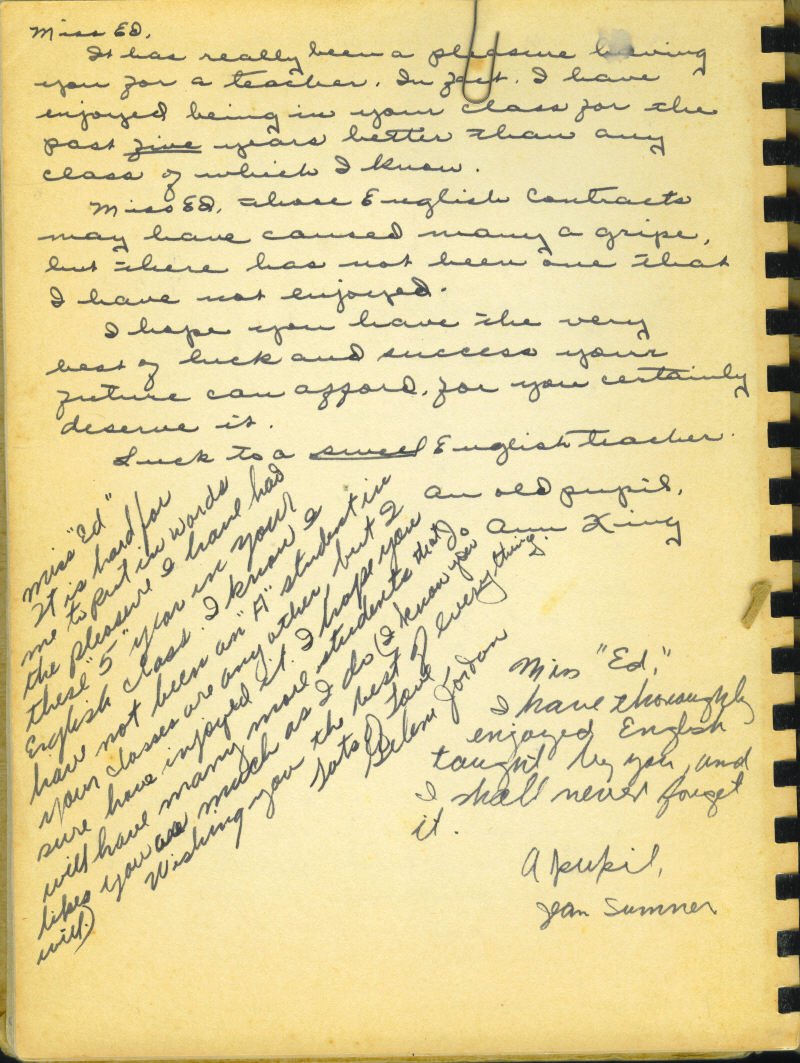 Miss Ed,
It has really been a pleasure having
you for a teacher. In fact, I have
enjoyed being in your class for the
past five years better than any
class of which I know.
Miss Ed, those English contracts
may have caused many a gripe,
but there has not been one that
I have not enjoyed.
I hope you have the very
best of luck and success your
future can afford, for you certainly
deserve it.
Luck to a swell English teacher.
an old pupil,
Ann King
Miss "Ed"
It is hard for
me to put in words
the pleasure I have had
these "5" year in your
English class. I know I
have not been an "A" student in
your classes are any other but I
sure have injoyed it. I hope you
will have many more students that do
likes you as much as I do (I know you
will.)
Wishing you the best of everything.
Lots of Love
Jordan
Miss "Ed,"
I have thoroughly
enjoyed English
taught by you and
I shall never forget
it.
A pupil,
Jean Sumner